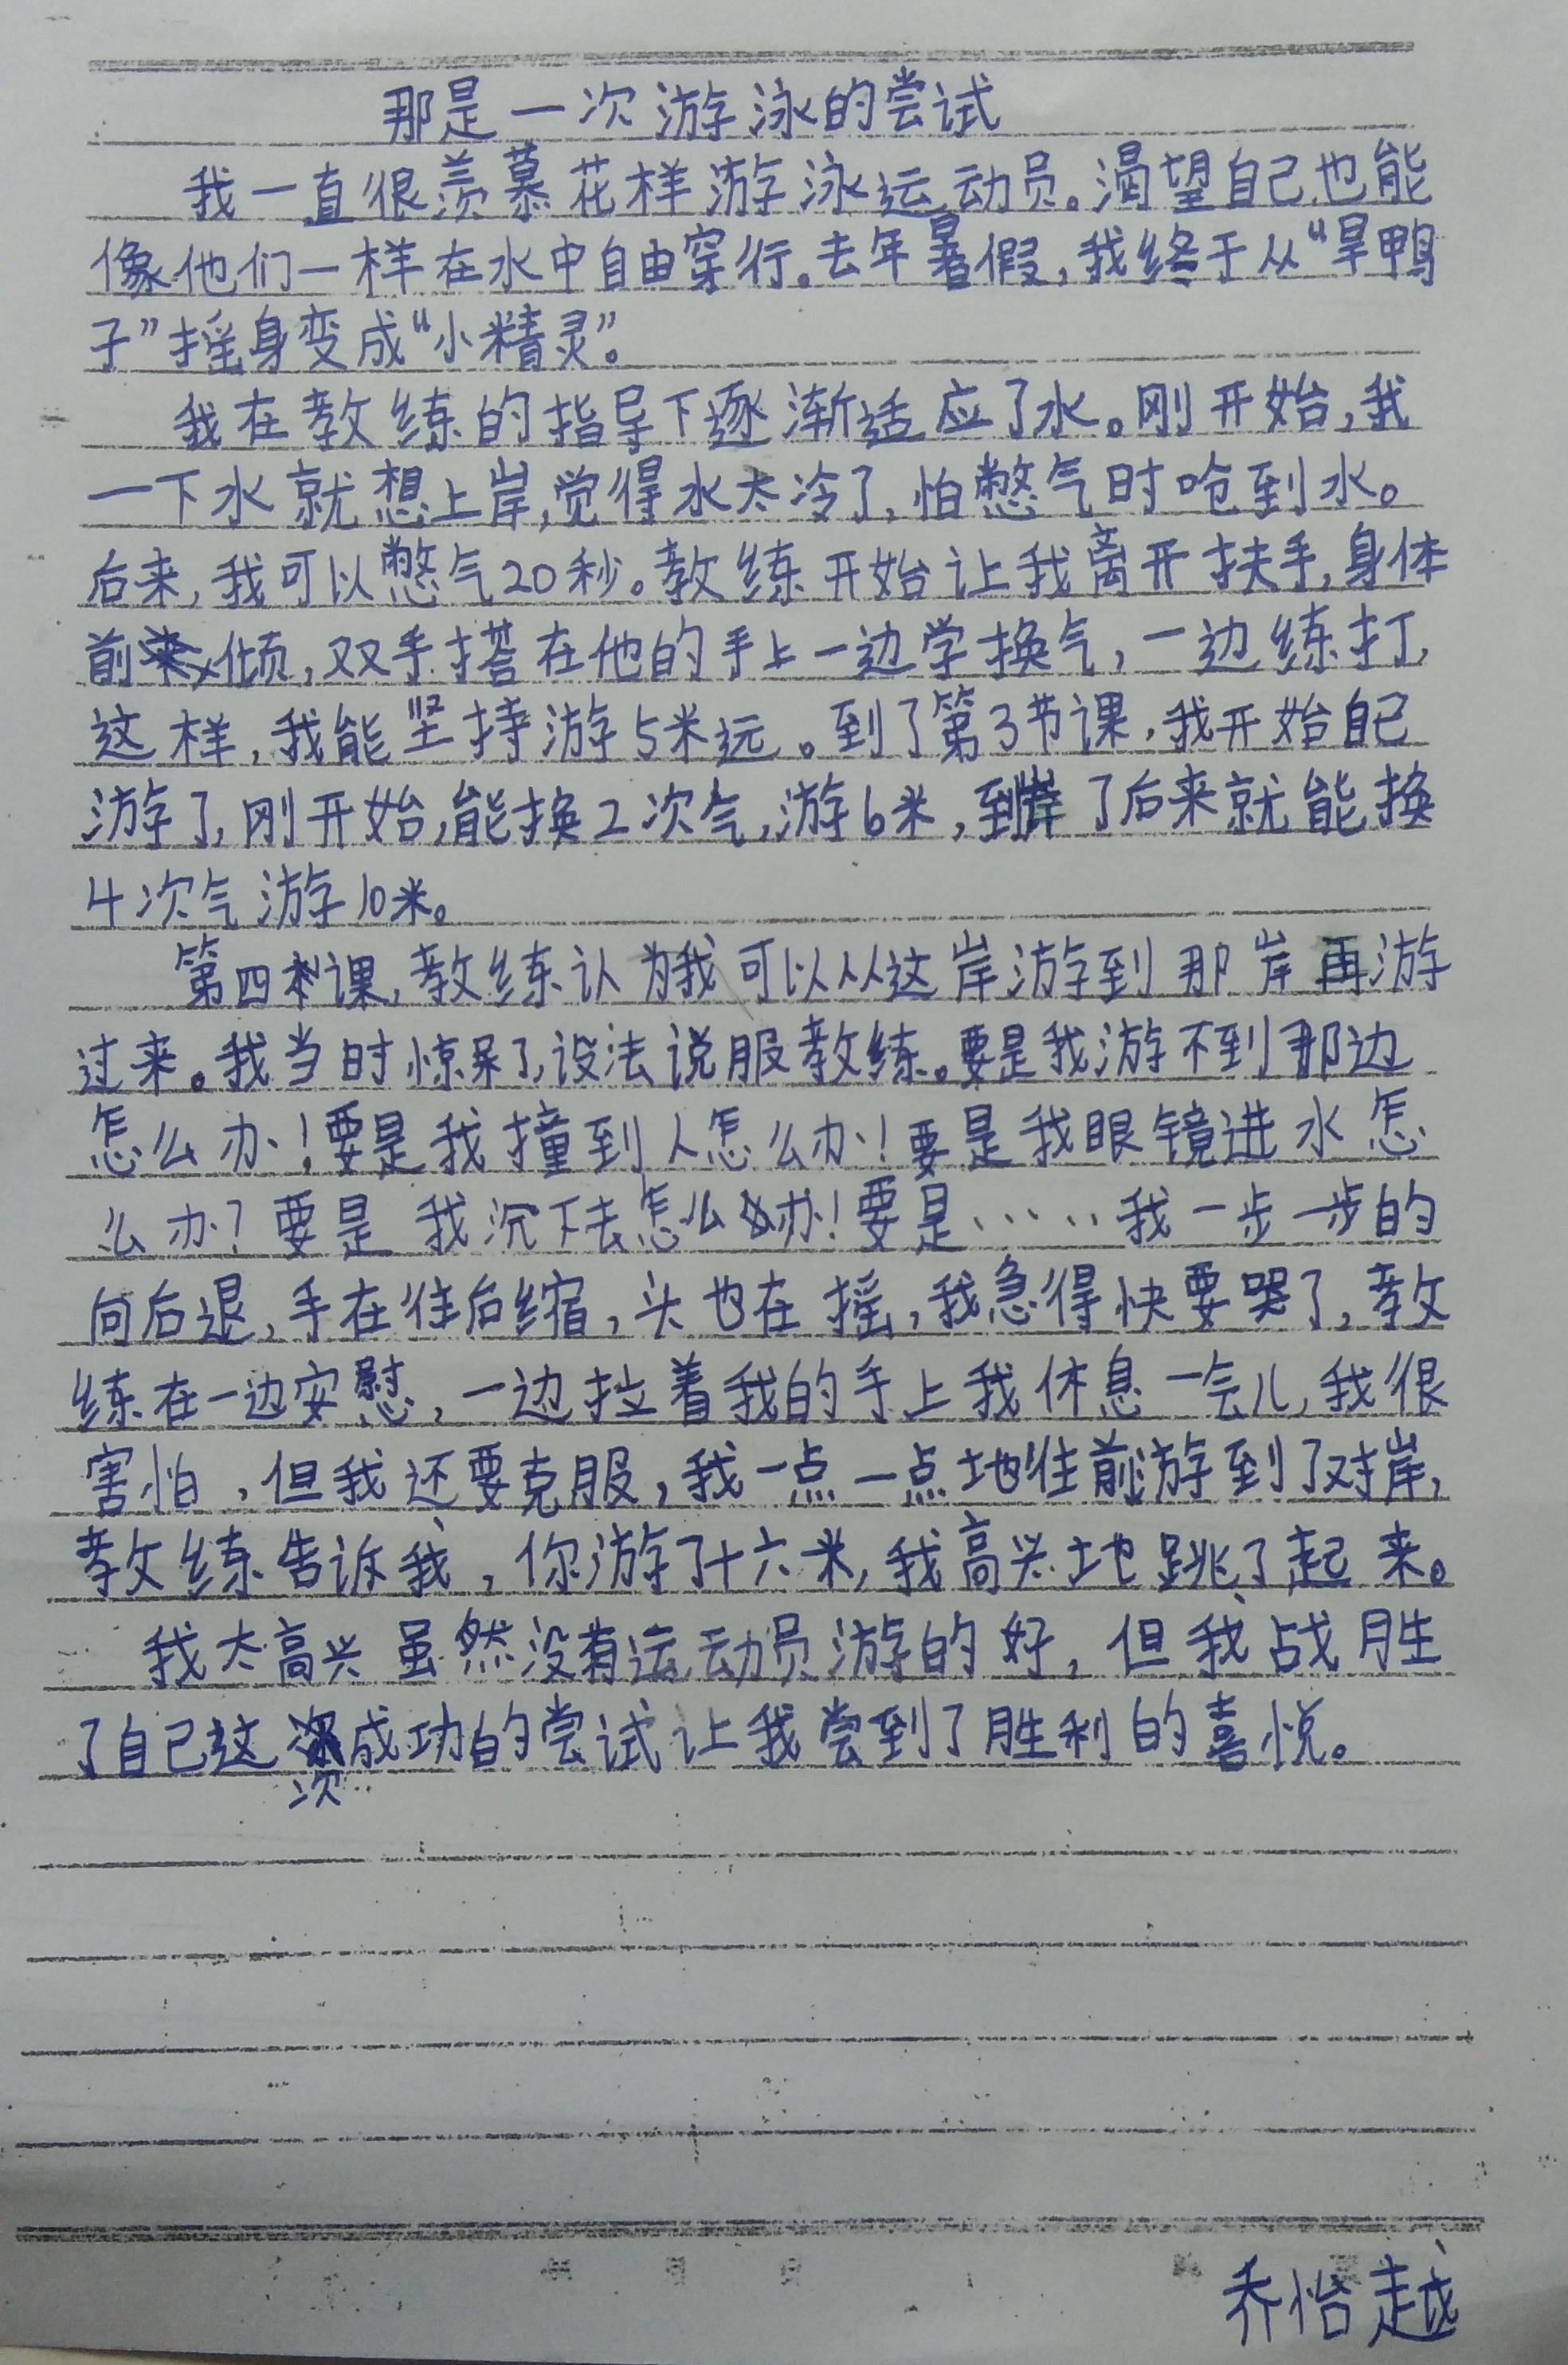 那是一次游泳的尝试
我一直很羡慕花样游泳运动员。渴望自己也能
像他们一样在水中自由穿行。去年暑假，我终于从“旱鸭
子”摇身变成“小精灵”。
我在教练的指导下逐渐适应了水。刚开始，我
一下水就想上岸，觉得水太冷了，怕憋气时呛到水。
后来，我可以憋气20秒。教练开始让我离开扶手，身体
前倾，双手搭在他的手上一边学换气，一边练打，
这样，我能坚持游5米远。到了第3节课，我开始自己
游了，刚开始，能换2次气，游6米，到了后来就能换
4次气游10米。
第四课，教练认为我可以从这岸游到那岸再游
过来。我当时惊呆了，设法说服教练。要是我游不到那边
怎么办！要是我撞到人怎么办！要是我眼镜进水怎
么办？要是我沉下去怎么办！要是……我一步一步的
向后退，手在往后缩，头也在摇，我急得快要哭了，教
练在一边安慰，一边拉着我的手上我休息一会儿，我很
害怕，但我还要克服，我一点一点地往前游到了对岸，
教练告诉我，你游了十六米，我高兴地跳了起来。
我太高兴虽然没有运动员游的好，但我战胜
了自己这次成功的尝试让我尝到了胜利的喜悦。
乔怡越